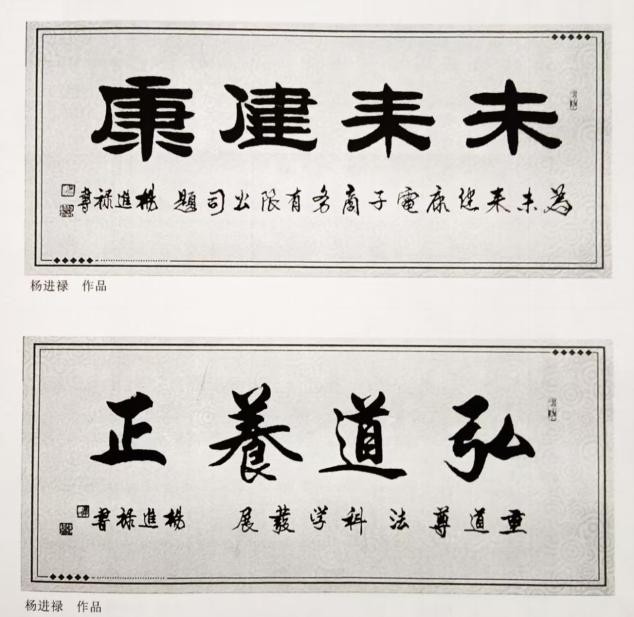 未来健康
为未来健康電子商务有限公司题 楊進禄書
杨进禄 作品
弘道養正
重道尊法科学發展 楊進禄書
杨进禄 作品